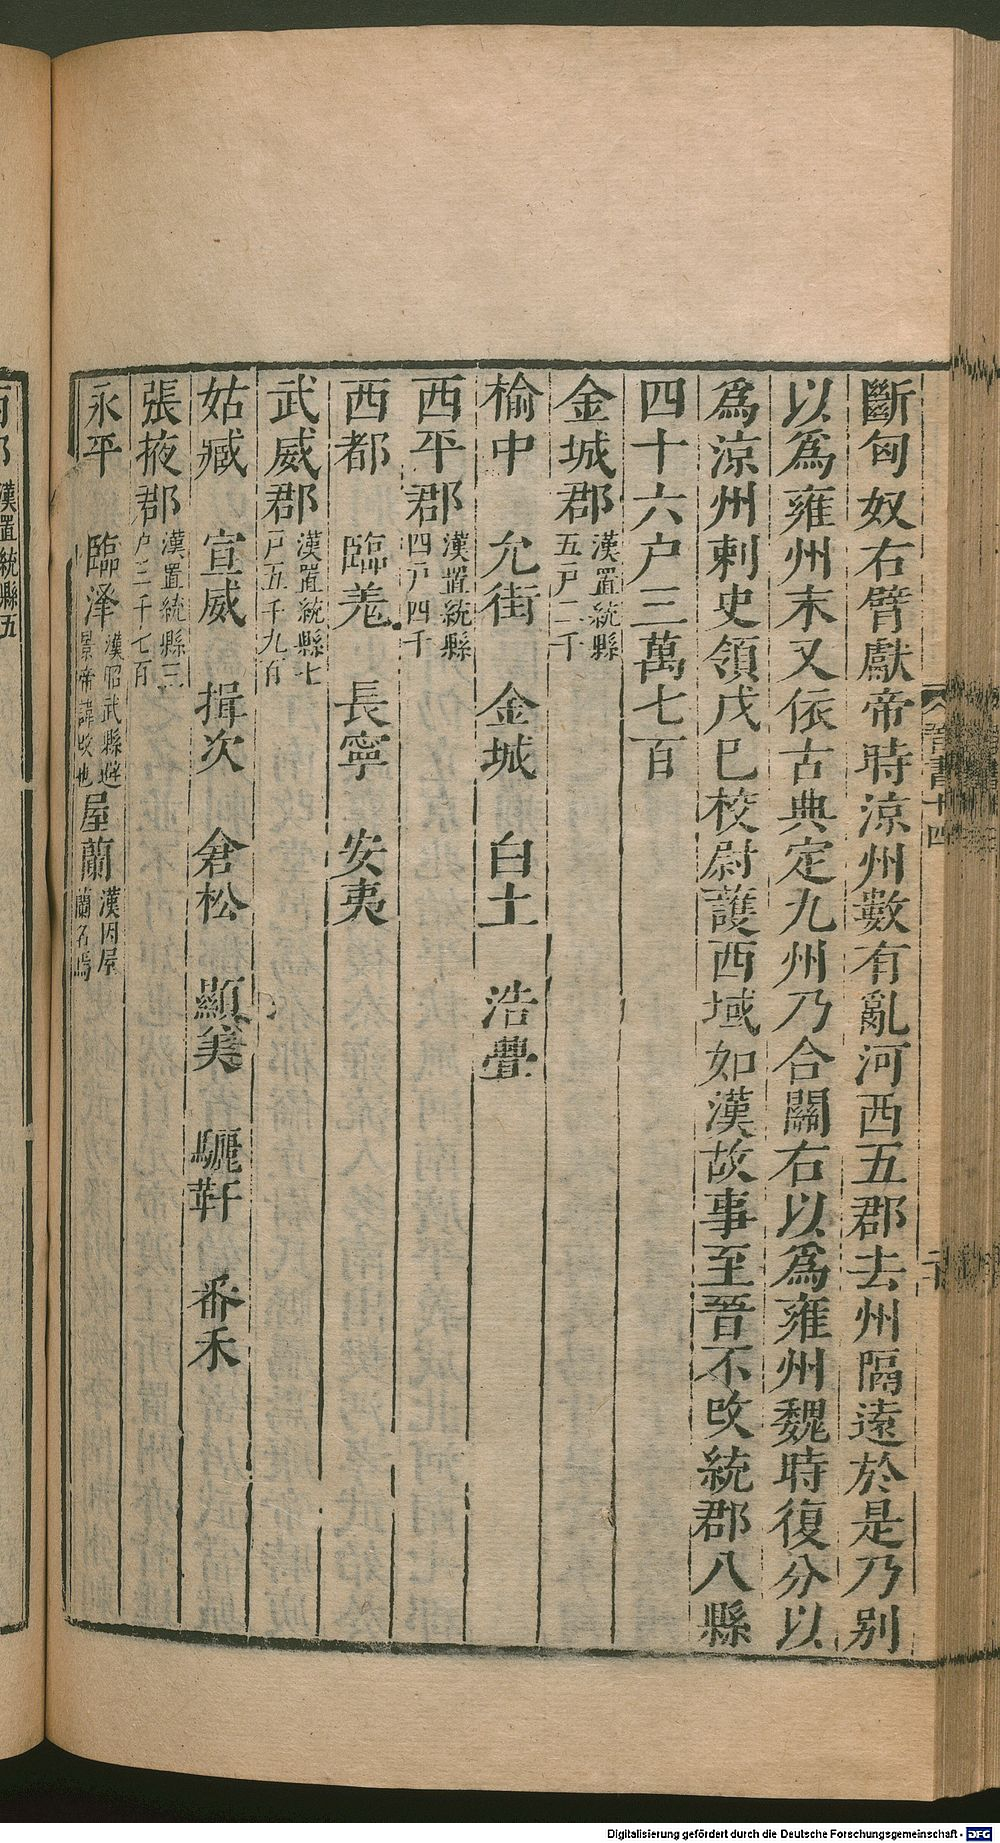 斷匈奴右臂獻帝時涼州數有亂河西五郡去州隔遠於是乃別
以爲雍州末又依古典定九州乃合關右以爲雍州魏時復分以
爲涼州刺史領戊巳校尉護西域如漢故事至晉不改統郡八縣
四十六户三萬七百
金城郡漢置統縣五戸二千
榆中 允街 金城 白土 浩亹
西平郡漢置統縣四戸四千
西都 臨羌 長寧 安夷
武威郡漢置統縣七戸五千九百
姑臧 宣威 揖次 倉松 顯美 驪靬 番禾
張掖郡漢置統縣三戸三千七百
永平 臨澤漢昭武縣避景帝諱改也屋蘭漢因屋蘭名焉
漢置統縣五
晉書十四
Digitalisierung gefördert durch die Deutsche Forschungsgemeinschaft - DFG